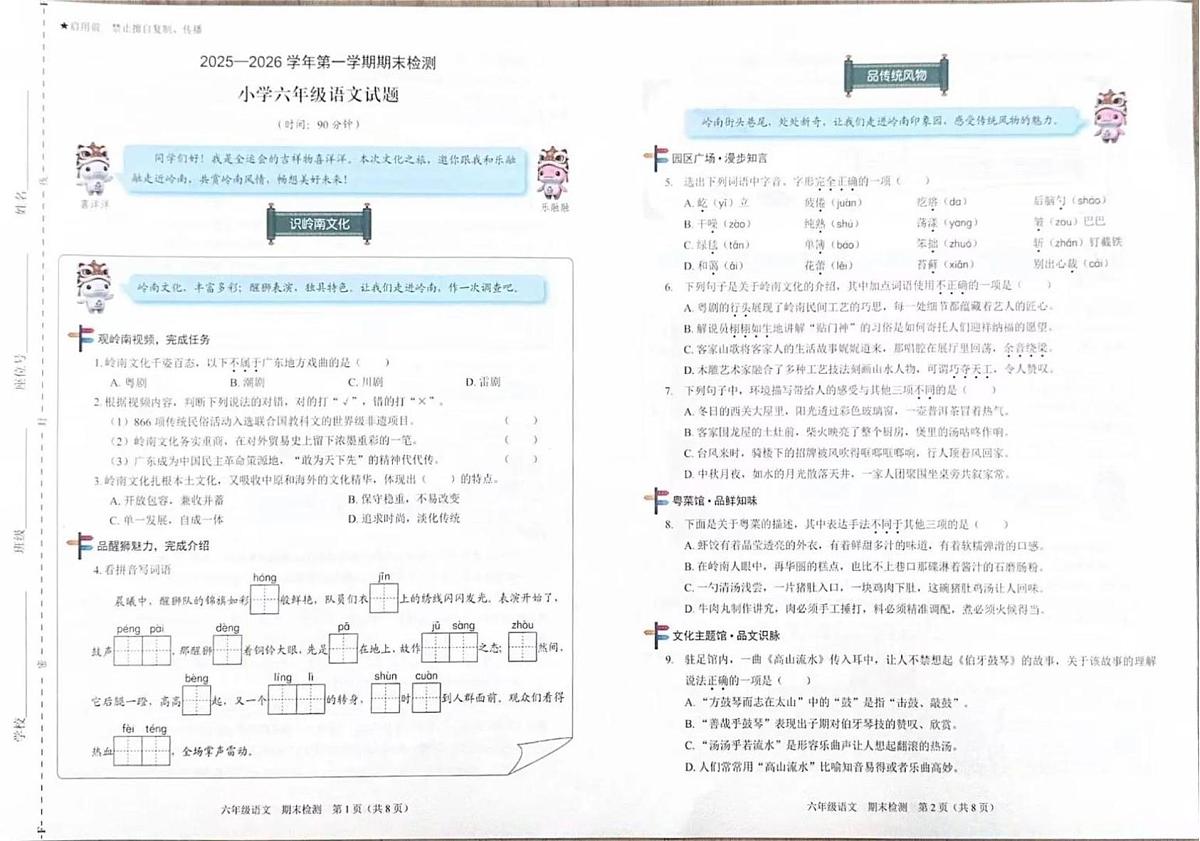 ★启用前 禁止擅自复制、传播
2025—2026 学年第一学期期末检测
小学六年级语文试题
(时间：90 分钟)
同学们好！我是全运会的吉祥物喜洋洋。本次文化之旅，邀你跟我和乐融
融走近岭南，共赏岭南风情，畅想美好未来！
喜洋洋
乐融融
识岭南文化
岭南文化，丰富多彩；醒狮表演，独具特色。让我们走进岭南，作一次调查吧。
观岭南视频，完成任务
1.岭南文化千姿百态，以下不属于广东地方戏曲的是（ ）
A. 粤剧 B. 潮剧 C. 川剧 D. 雷剧
2.根据视频内容，判断下列说法的对错，对的打“√”，错的打“×”。
（1）866 项传统民俗活动入选联合国教科文的世界级非遗项目。 （ ）
（2）岭南文化务实重商，在对外贸易史上留下浓墨重彩的一笔。 （ ）
（3）广东成为中国民主革命策源地，“敢为天下先”的精神代代传。 （ ）
3.岭南文化扎根本土文化，又吸收中原和海外的文化精华，体现出（ ）的特点。
A. 开放包容，兼收并蓄 B. 保守稳重，不易改变
C. 单一发展，自成一体 D. 追求时尚，淡化传统
品醒狮魅力，完成介绍
4.看拼音写词语
hóng jīn
晨曦中，醒狮队的锦旗如彩 般鲜艳，队员们衣 上的绣线闪闪发光。表演开始了，
péng pài dèng pā jǔ sàng zhòu
鼓声 ，那醒狮 着铜铃大眼，先是 在地上，故作 之态； 然间，
bèng líng lì shùn cuàn
它后腿一蹬，高高 起，又一个 的转身， 时 到人群面前。观众们看得
fèi téng
热血 ，全场掌声雷动。
六年级语文 期末检测 第 1 页（共 8 页）
学校
班级
座位号
姓名
密
封
线
品传统风物
岭南街头巷尾，处处新奇。让我们走进岭南印象园，感受传统风物的魅力。
园区广场·漫步知言
5. 选出下列词语中字音、字形完全正确的一项（ ）
A. 屹（yì）立 疲倦（juàn） 疙瘩（da） 后脑勺（sháo）
B. 干噪（zào） 纯熟（shú） 荡漾（yàng） 皱（zòu）巴巴
C. 绿毯（tǎn） 单簿（báo） 笨拙（zhuó） 斩（zhǎn）钉截铁
D. 和蔼（ǎi） 花蕾（lěi） 苔藓（xiǎn） 别出心裁（cái）
6. 下列句子是关于岭南文化的介绍，其中加点词语使用不正确的一项是（ ）
A. 粤剧的行头展现了岭南民间工艺的巧思，每一处细节都蕴藏着艺人的匠心。
B. 解说员栩栩如生地讲解“贴门神”的习俗是如何寄托人们迎祥纳福的愿望。
C. 客家山歌将客家人的生活故事娓娓道来，那唱腔在展厅里回荡，余音绕梁。
D. 木雕艺术家融合了多种工艺技法刻画山水人物，可谓巧夺天工，令人赞叹。
7. 下列句子中，环境描写带给人的感受与其他三项不同的是（ ）
A. 冬日的西关大屋里，阳光透过彩色玻璃窗，一壶普洱茶冒着热气。
B. 客家围龙屋的土灶前，柴火映亮了整个厨房，煲里的汤咕咚作响。
C. 台风来时，骑楼下的招牌被风吹得哐啷哐啷响，行人顶着风回家。
D. 中秋月夜，如水的月光散落天井，一家人团聚围坐桌旁共叙家常。
粤菜馆·品鲜知味
8. 下面是关于粤菜的描述，其中表达手法不同于其他三项的是（ ）
A. 虾饺有着晶莹透亮的外衣，有着鲜甜多汁的味道，有着软糯弹滑的口感。
B. 在岭南人眼中，再华丽的糕点，也比不上巷口那碟淋着酱汁的石磨肠粉。
C. 一勺清汤浅尝，一片猪肚入口，一块鸡肉下肚，这碗猪肚鸡汤让人回味。
D. 牛肉丸制作讲究，肉必须手工捶打，料必须精准调配，煮必须火候得当。
文化主题馆·品文识脉
9. 驻足馆内，一曲《高山流水》传入耳中，让人不禁想起《伯牙鼓琴》的故事，关于该故事的理解
说法正确的一项是（ ）
A. “方鼓琴而志在太山”中的“鼓”是指“击鼓、敲鼓”。
B. “善哉乎鼓琴”表现出子期对伯牙琴技的赞叹、欣赏。
C. “汤汤乎若流水”是形容乐曲声让人想起翻滚的热汤。
D. 人们常常用“高山流水”比喻知音易得或者乐曲高妙。
六年级语文 期末检测 第 2 页（共 8 页）